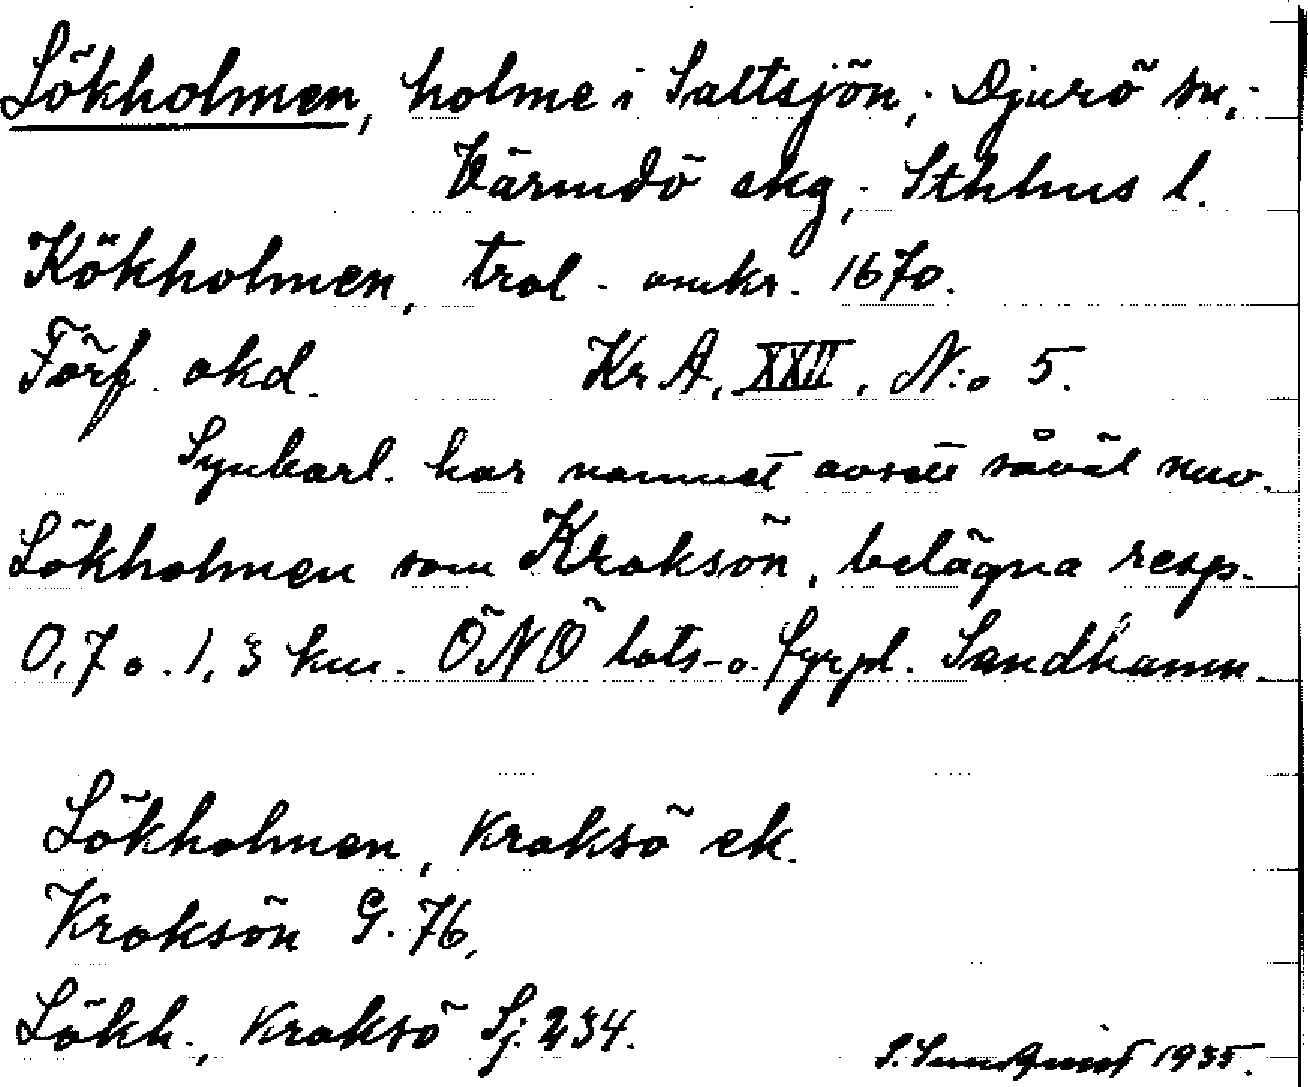 Lökholmen, holme i Saltsjön; Djurö sn,
Värmdö skg, Sthlms l.
Kökholmen, trol. omkr. 1670.
Förf. okd. Kr A, XXII, N:o 5.
Synbarl. har namnet avsett såväl nuv.
Lökholmen som Kroksön, belägna resp.
0,7 o. 1,3 km. ÖNÖ lots- o. fyrpl. Sandhamn.
Lökholmen, Kroksö ek.
Kroksön G. 76,
Lökh., Kroksö Sj. 234.
S. Sundqvist 1935.